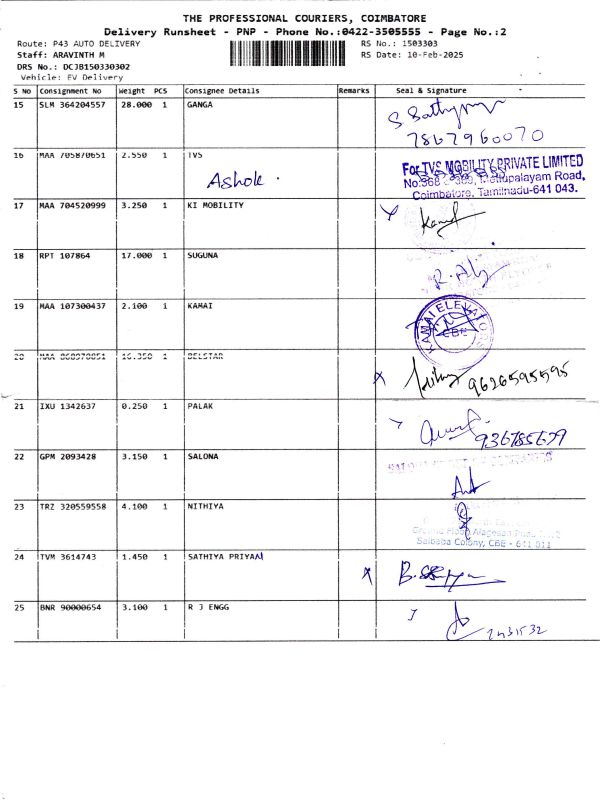 THE PROFESSIONAL COURIERS, COIMBATORE
Delivery Runsheet - PNP - Phone No.:0422-3505555 - Page No.:2
Route: P43 AUTO DELIVERY RS No.: 1503303
Staff: ARAVINTH M RS Date: 10-Feb-2025
DRS No.: DCJB150330302
Vehicle: EV Delivery
S No Consignment No Weight PCS Consignee Details Remarks Seal & Signature
15 SLM 364204557 28.000 1 GANGA
7867960070
16 MAA 705870651 2.550 1 TVS
Ashok.
For TVS MOBILITY PRIVATE LIMITED
Mettupalayam Road,
Coimbatore, Tamilnadu-641 043.
17 MAA 704520999 3.250 1 KI MOBILITY
18 RPT 107864 17.000 1 SUGUNA
19 MAA 107300437 2.100 1 KAMAI
KAMAI ELEVATORS
CBE
20 MAA 868978851 16.350 1 BELSTAR
9626595595
21 IXU 1342637 0.250 1 PALAK
936785679
22 GPM 2093428 3.150 1 SALONA
23 TRZ 320559558 4.100 1 NITHIYA
Saibaba Colony, CBE - 641 011
24 TVM 3614743 1.450 1 SATHIYA PRIYAN
25 BNR 90000654 3.100 1 R J ENGG